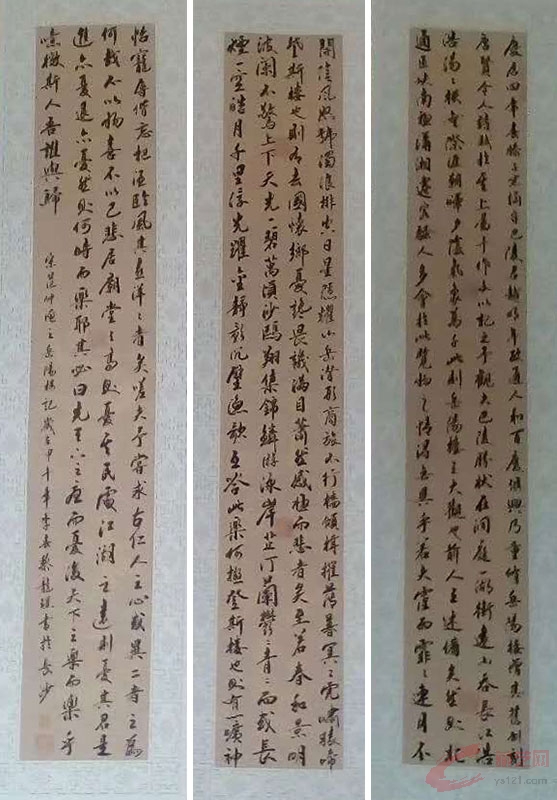 慶曆四年春滕子京謫守巴陵郡越明年政通人和百廢俱興乃重修岳陽樓增其舊制刻
唐賢今人詩賦於其上屬予作文以記之予觀夫巴陵勝狀在洞庭一湖銜遠山吞長江浩
浩湯湯橫無際涯朝暉夕陰氣象萬千此則岳陽樓之大觀也前人之述備矣然則北
通巫峽南極瀟湘遷客騷人多會於此覽物之情得無異乎若夫霪雨霏霏連月不
開陰風怒號濁浪排空日星隱耀山岳潛形商旅不行檣傾楫摧薄暮冥冥虎嘯猿啼
登斯樓也則有去國懷鄉憂讒畏譏滿目蕭然感極而悲者矣至若春和景明
波瀾不驚上下天光一碧萬頃沙鷗翔集錦鱗游泳岸芷汀蘭鬱鬱青青而或長
煙一空皓月千里浮光躍金靜影沉璧漁歌互答此樂何極登斯樓也則有心曠神
怡寵辱偕忘把酒臨風其喜洋洋者矣嗟夫予嘗求古仁人之心或異二者之為
何哉不以物喜不以己悲居廟堂之高則憂其民處江湖之遠則憂其君是
進亦憂退亦憂然則何時而樂耶其必曰先天下之憂而憂後天下之樂而樂乎
噫微斯人吾誰與歸
宋范仲淹之岳陽樓記歲在甲午年季春蔡龍書於長沙
ys121.com